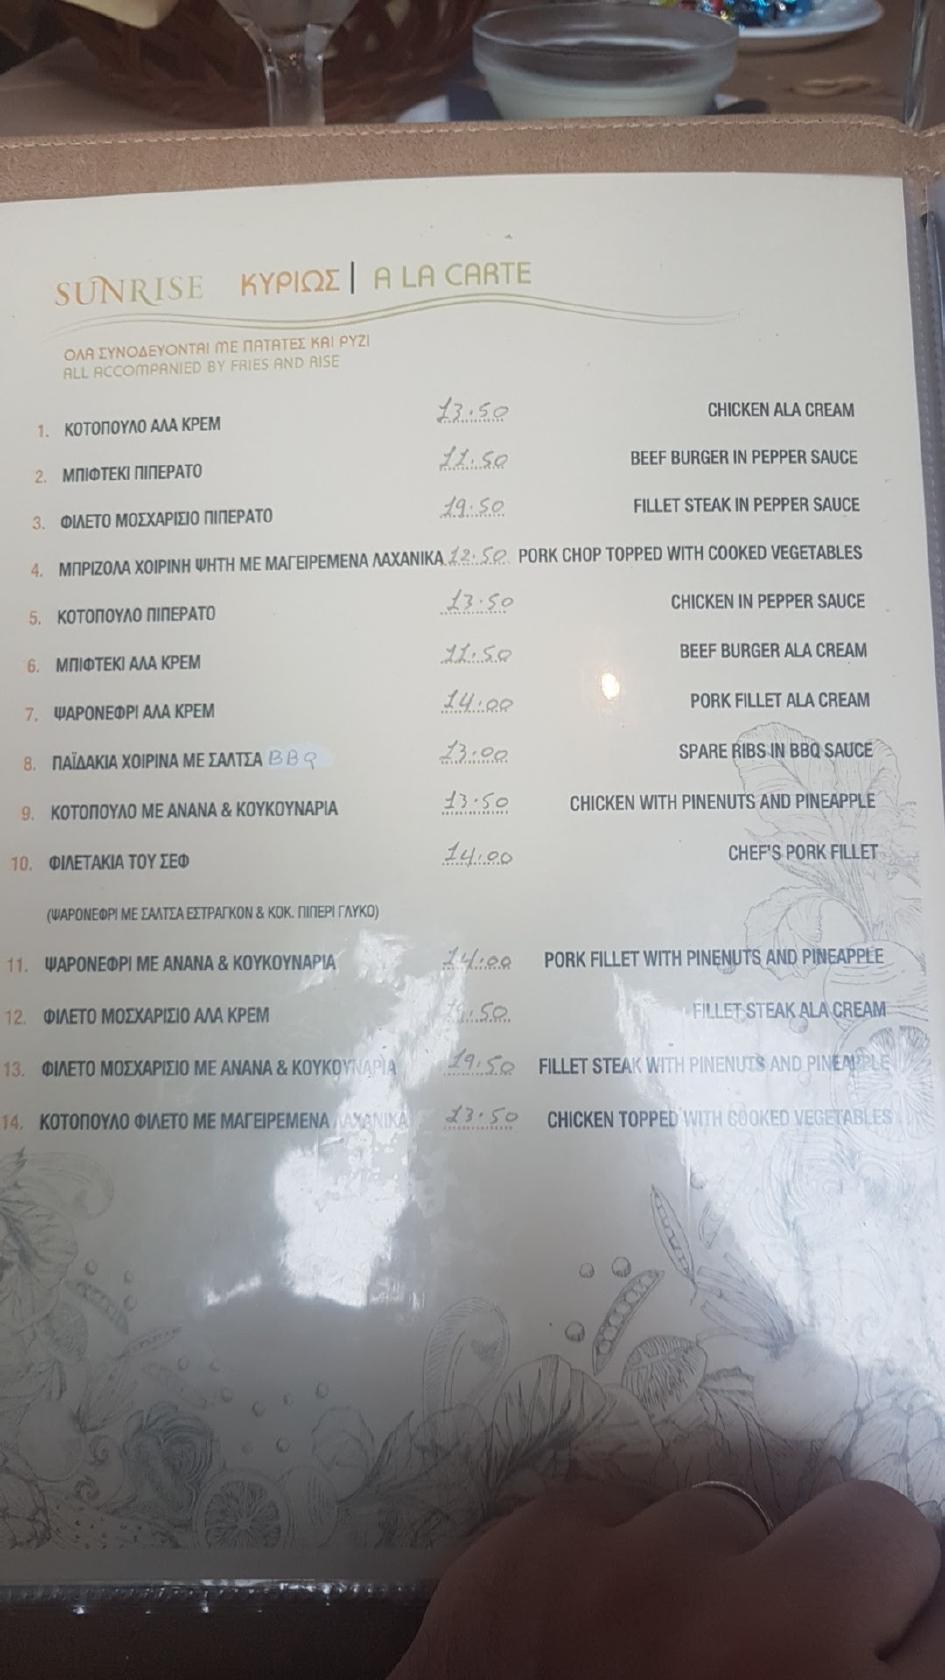 SUNRISE ΚΥΡΙΩΣ | A LA CARTE
ΟΛΑ ΣΥΝΟΔΕΥΟΝΤΑΙ ΜΕ ΠΑΤΑΤΕΣ ΚΑΙ ΡΥΖΙ
ALL ACCOMPANIED BY FRIES AND RISE
1. ΚΟΤΟΠΟΥΛΟ ΑΛΑ ΚΡΕΜ 13.50 CHICKEN ALA CREAM
2. ΜΠΙΦΤΕΚΙ ΠΙΠΕΡΑΤΟ 11.50 BEEF BURGER IN PEPPER SAUCE
3. ΦΙΛΕΤΟ ΜΟΣΧΑΡΙΣΙΟ ΠΙΠΕΡΑΤΟ 19.50 FILLET STEAK IN PEPPER SAUCE
4. ΜΠΡΙΖΟΛΑ ΧΟΙΡΙΝΗ ΨΗΤΗ ΜΕ ΜΑΓΕΙΡΕΜΕΝΑ ΛΑΧΑΝΙΚΑ 12.50 PORK CHOP TOPPED WITH COOKED VEGETABLES
5. ΚΟΤΟΠΟΥΛΟ ΠΙΠΕΡΑΤΟ 13.50 CHICKEN IN PEPPER SAUCE
6. ΜΠΙΦΤΕΚΙ ΑΛΑ ΚΡΕΜ 11.50 BEEF BURGER ALA CREAM
7. ΨΑΡΟΝΕΦΡΙ ΑΛΑ ΚΡΕΜ 14.00 PORK FILLET ALA CREAM
8. ΠΑΪΔΑΚΙΑ ΧΟΙΡΙΝΑ ΜΕ ΣΑΛΤΣΑ BBQ 13.00 SPARE RIBS IN BBQ SAUCE
9. ΚΟΤΟΠΟΥΛΟ ΜΕ ΑΝΑΝΑ & ΚΟΥΚΟΥΝΑΡΙΑ 13.50 CHICKEN WITH PINENUTS AND PINEAPPLE
10. ΦΙΛΕΤΑΚΙΑ ΤΟΥ ΣΕΦ 14.00 CHEF'S PORK FILLET
(ΨΑΡΟΝΕΦΡΙ ΜΕ ΣΑΛΤΣΑ ΕΣΤΡΑΓΚΟΝ & ΚΟΚ. ΠΙΠΕΡΙ ΓΛΥΚΟ)
11. ΨΑΡΟΝΕΦΡΙ ΜΕ ΑΝΑΝΑ & ΚΟΥΚΟΥΝΑΡΙΑ 14.00 PORK FILLET WITH PINENUTS AND PINEAPPLE
12. ΦΙΛΕΤΟ ΜΟΣΧΑΡΙΣΙΟ ΑΛΑ ΚΡΕΜ 19.50 FILLET STEAK ALA CREAM
13. ΦΙΛΕΤΟ ΜΟΣΧΑΡΙΣΙΟ ΜΕ ΑΝΑΝΑ & ΚΟΥΚΟΥΝΑΡΙΑ 19.50 FILLET STEAK WITH PINENUTS AND PINEAPPLE
14. ΚΟΤΟΠΟΥΛΟ ΦΙΛΕΤΟ ΜΕ ΜΑΓΕΙΡΕΜΕΝΑ ΛΑΧΑΝΙΚΑ 13.50 CHICKEN TOPPED WITH COOKED VEGETABLES